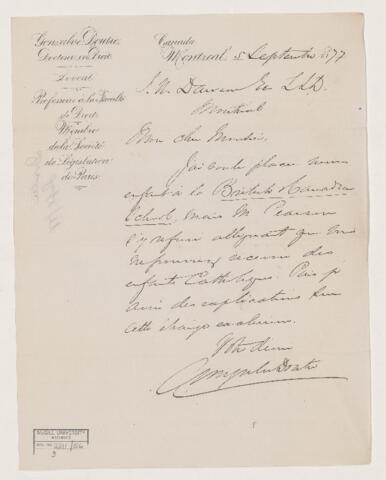 Gonzalve Doutre,
Docteur en Droit
Avocat
Professeur à la Faculté
de Droit
Membre
de la Société
de Législation
de Paris.
Canada
Montreal, 5 Septembre 1877
J. W. Dawson Es LLD.
Montreal
Mon cher Monsieur,
J'ai voulu placer mes
enfants à la British & Canadian
School, mais M. Pearson
s'y refuse alléguant que vous
ne pouvez recevoir des
enfants Catholiques. Puis-je
avoir des explications sur
cette étrange exclusion.
Votre
Gonzalve Doutre
McGILL UNIVERSITY
ARCHIVES